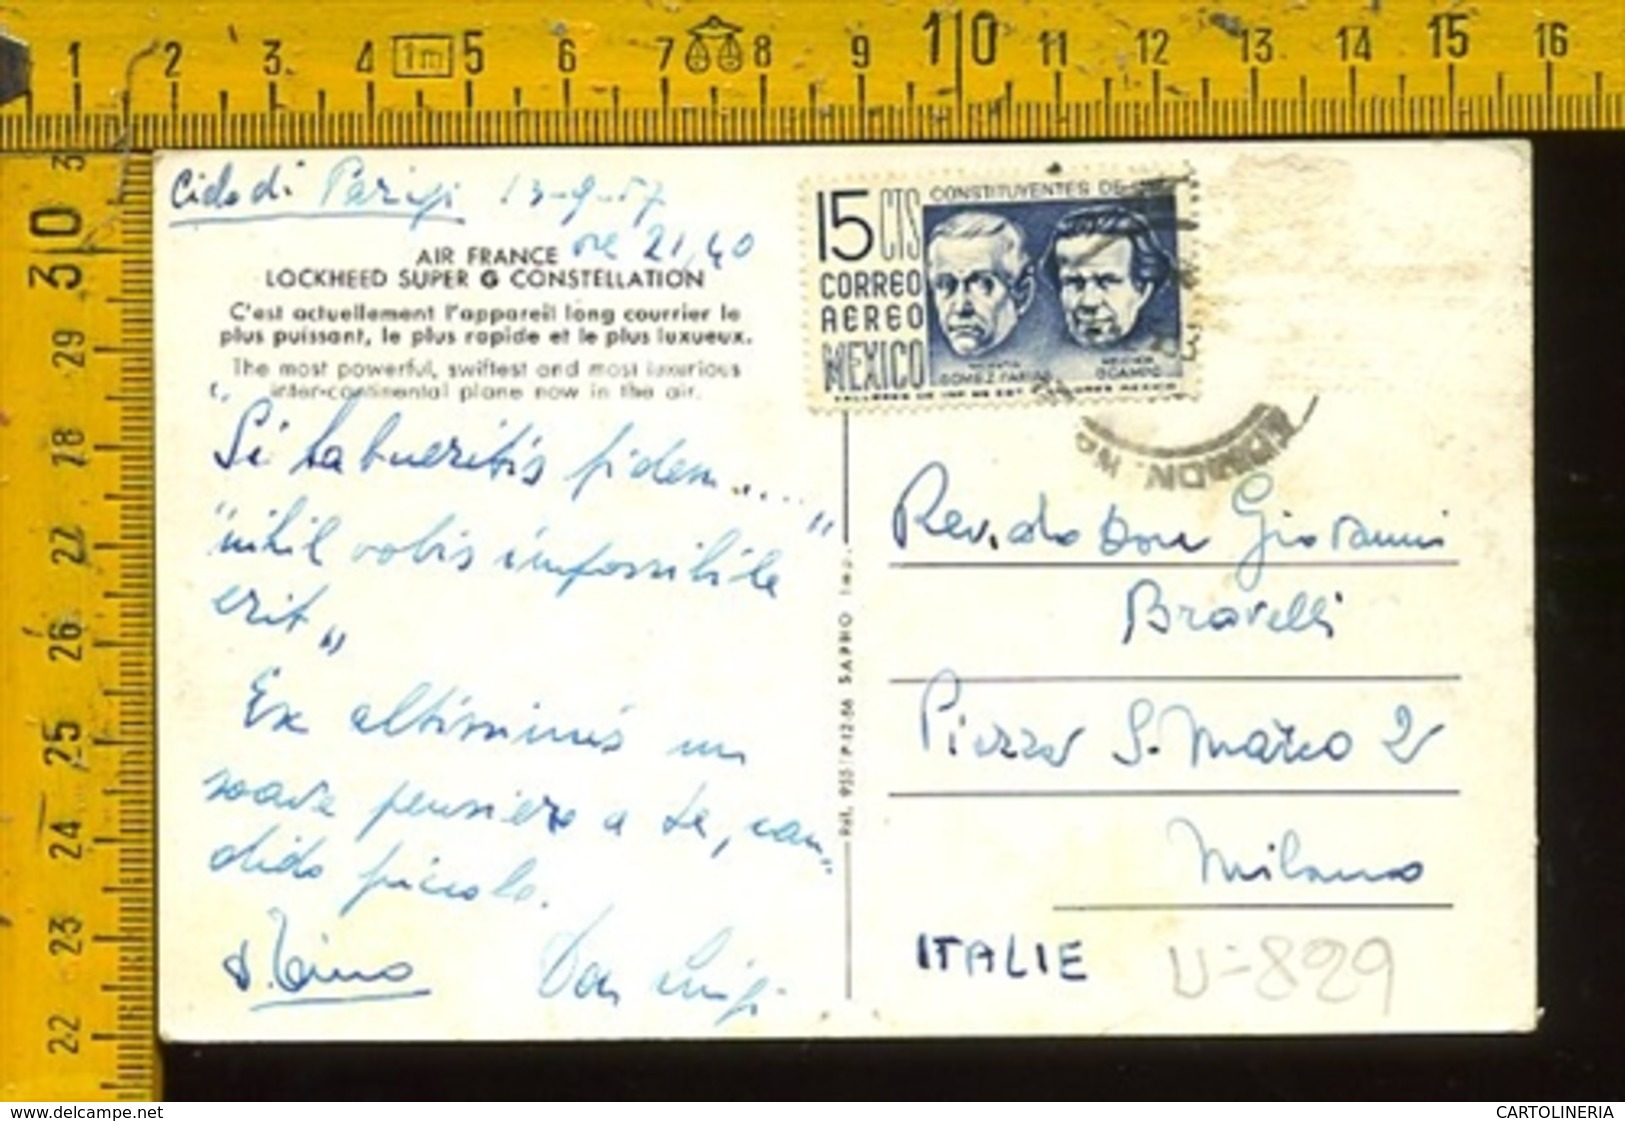 1 2 3 4 1m 5 6 7 8 9 10 11 12 13 14 15 16
3
30
29
28
27
26
25
24
23
22
Cielo di Parigi 13-9-57
ore 21,40
AIR FRANCE
LOCKHEED SUPER G CONSTELLATION
C'est actuellement l'appareil long courrier le
plus puissant, le plus rapide et le plus luxueux.
The most powerful, swiftest and most luxurious
inter-continental plane now in the air.
"Si habueritis fidem....."
"nihil vobis impossibile
erit"
Ex altissimis un
soave pensiero a te, can-
dido piccolo.
d. Tino Don Luigi
Réf. 955 P-12-56 SAPHO Imp.
15 CTS
CONSTITUYENTES DE
CORREO
AEREO
MEXICO
GOMEZ FARIAS
OCAMPO
TALLERES DE IMP DE EST VALORES MEXICO
Rev.do Don Giovanni
Bravelli
Piazza S. Marco 2
Milano
ITALIE
U-829
www.delcampe.net
CARTOLINERIA